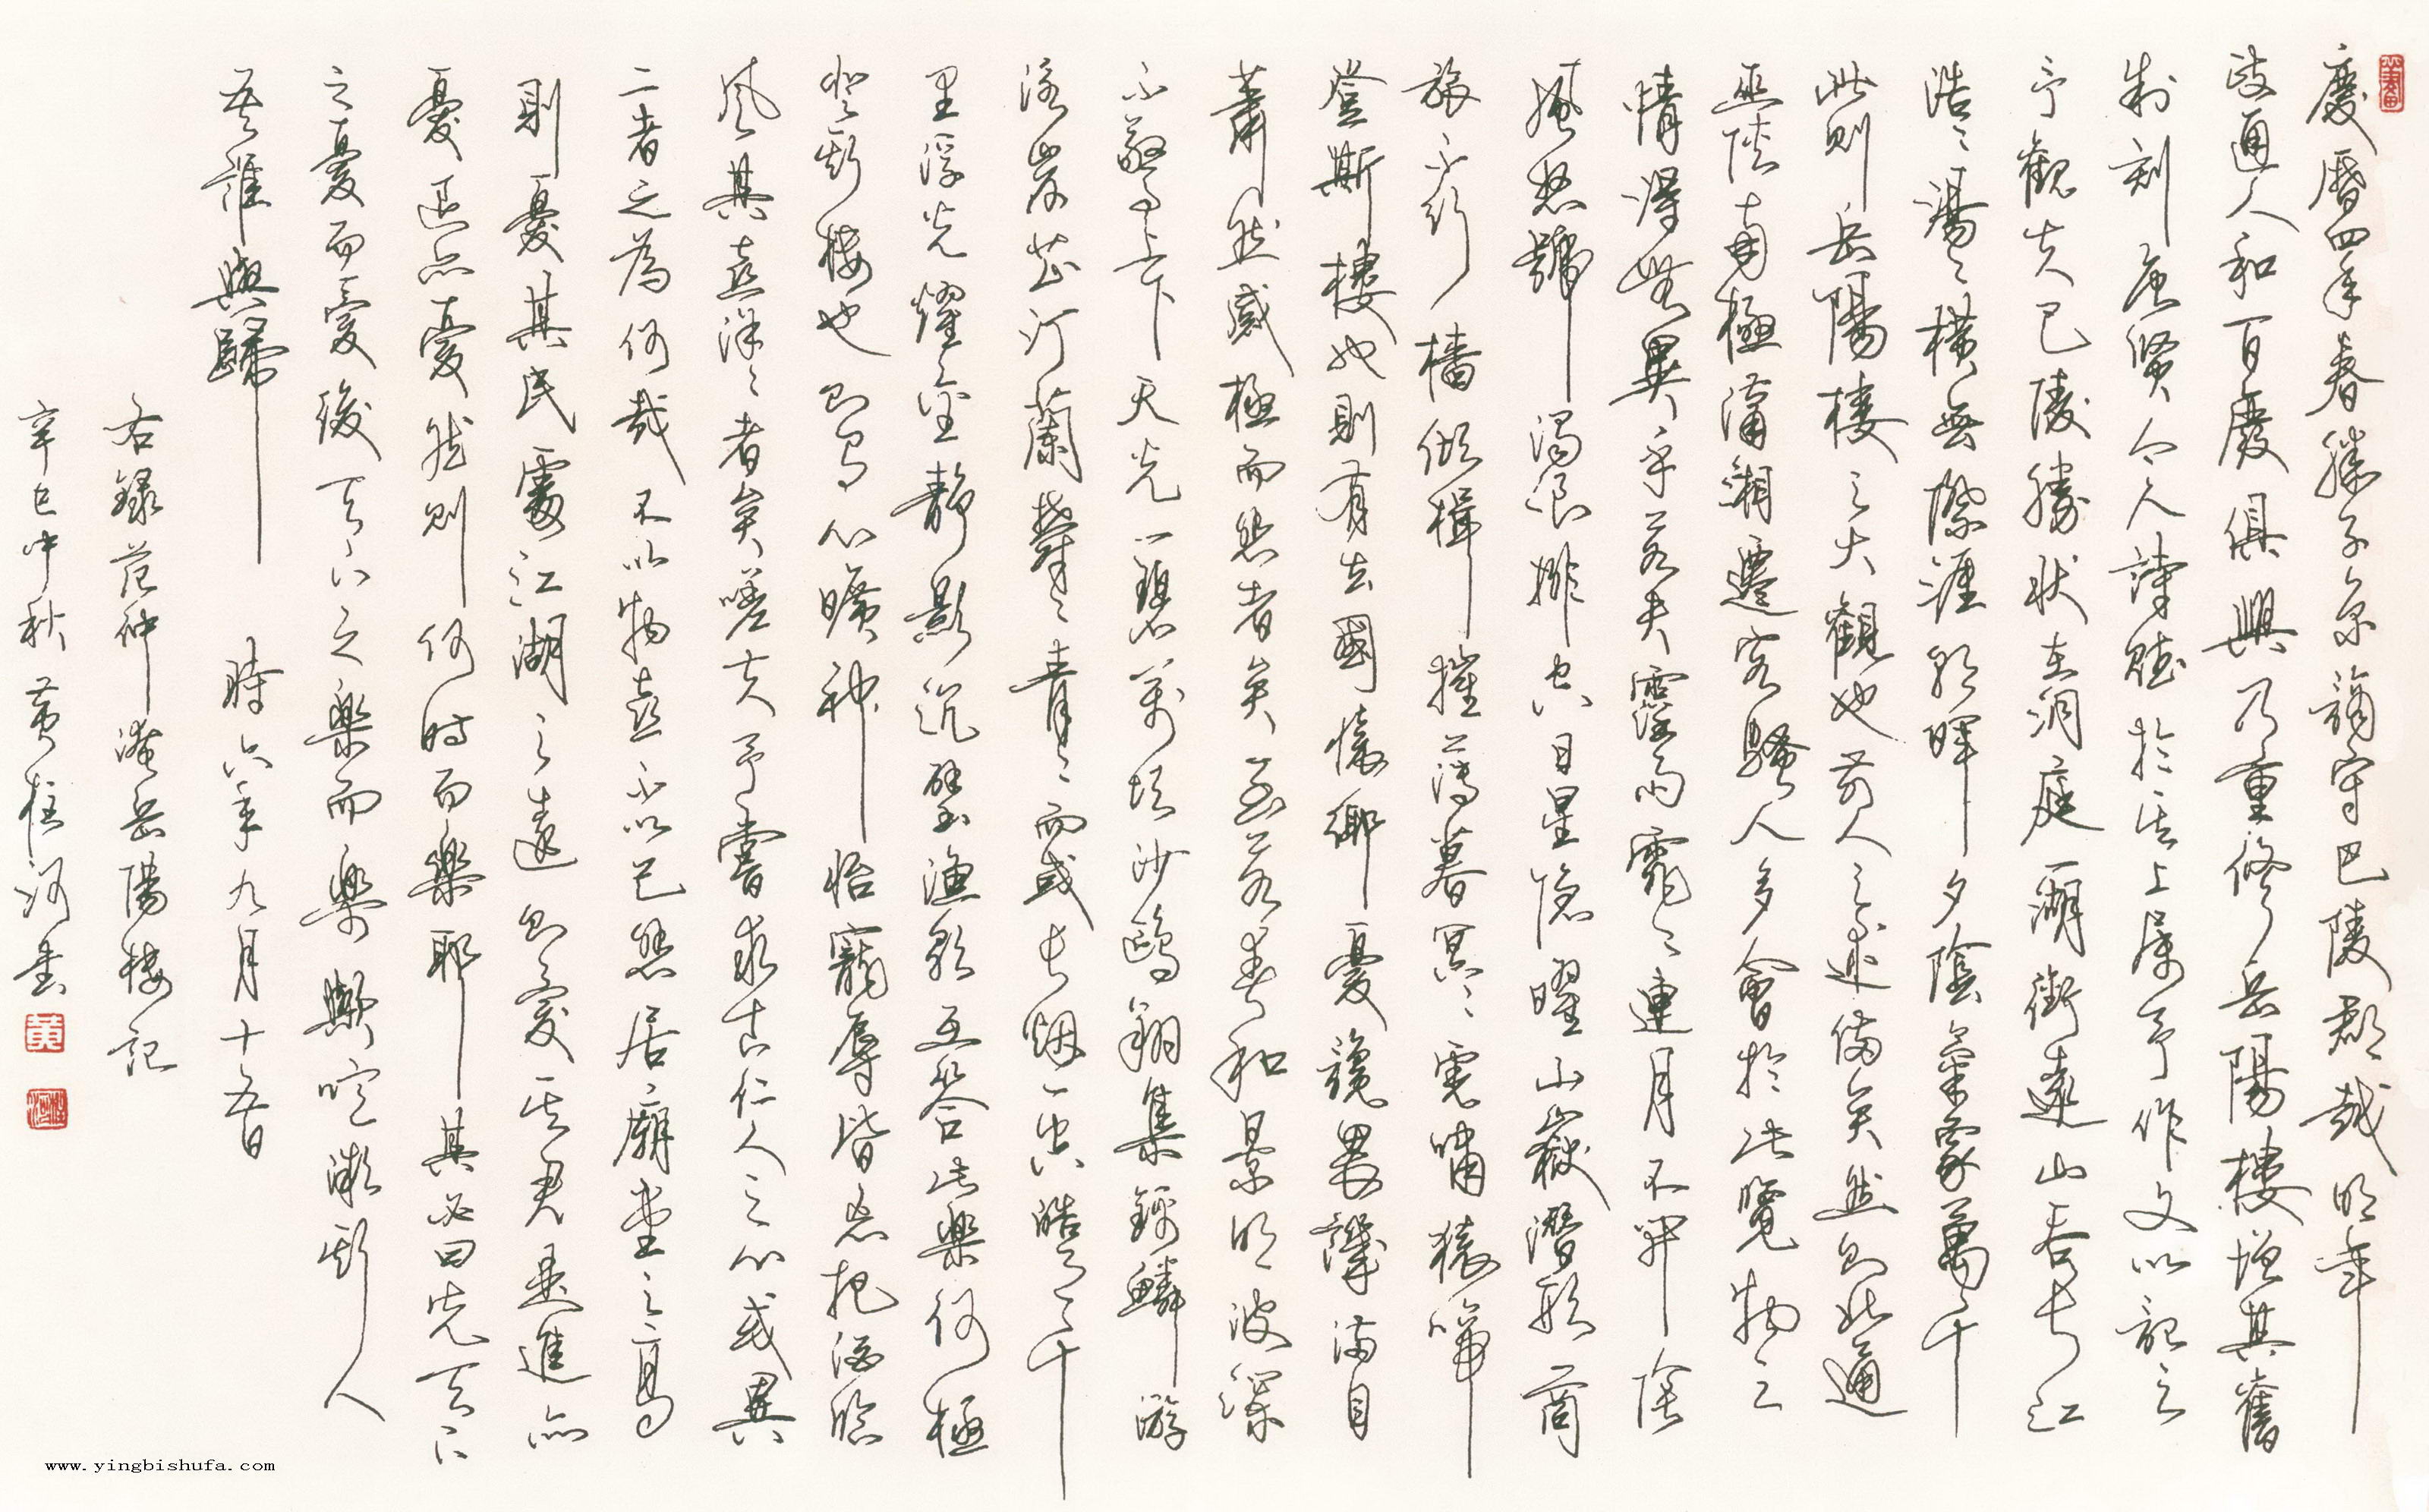 慶曆四年春滕子京謫守巴陵郡越明年
政通人和百廢俱興乃重修岳陽樓增其舊
制刻唐賢今人詩賦於其上屬予作文以記之
予觀夫巴陵勝狀在洞庭一湖銜遠山吞長江
浩浩湯湯橫無際涯朝暉夕陰氣象萬千
此則岳陽樓之大觀也前人之述備矣然則北通
巫峽南極瀟湘遷客騷人多會於此覽物之
情得無異乎若夫霪雨霏霏連月不開陰
風怒號濁浪排空日星隱曜山嶽潛形商
旅不行檣傾楫摧薄暮冥冥虎嘯猿啼
登斯樓也則有去國懷鄉憂讒畏譏滿目
蕭然感極而悲者矣至若春和景明波瀾
不驚上下天光一碧萬頃沙鷗翔集錦鱗游
泳岸芷汀蘭鬱鬱青青而或長煙一空皓月千
里浮光耀金靜影沉璧漁歌互答此樂何極
登斯樓也則有心曠神怡寵辱皆忘把酒臨
風其喜洋洋者矣嗟夫予嘗求古仁人之心或異
二者之為何哉不以物喜不以己悲居廟堂之高
則憂其民處江湖之遠則憂其君是進亦
憂退亦憂然則何時而樂耶其必曰先天下
之憂而憂後天下之樂而樂歟噫微斯人
吾誰與歸 時六年九月十五日
右錄范仲淹岳陽樓記
辛巳中秋黃柱河書
www.yingbishufa.com